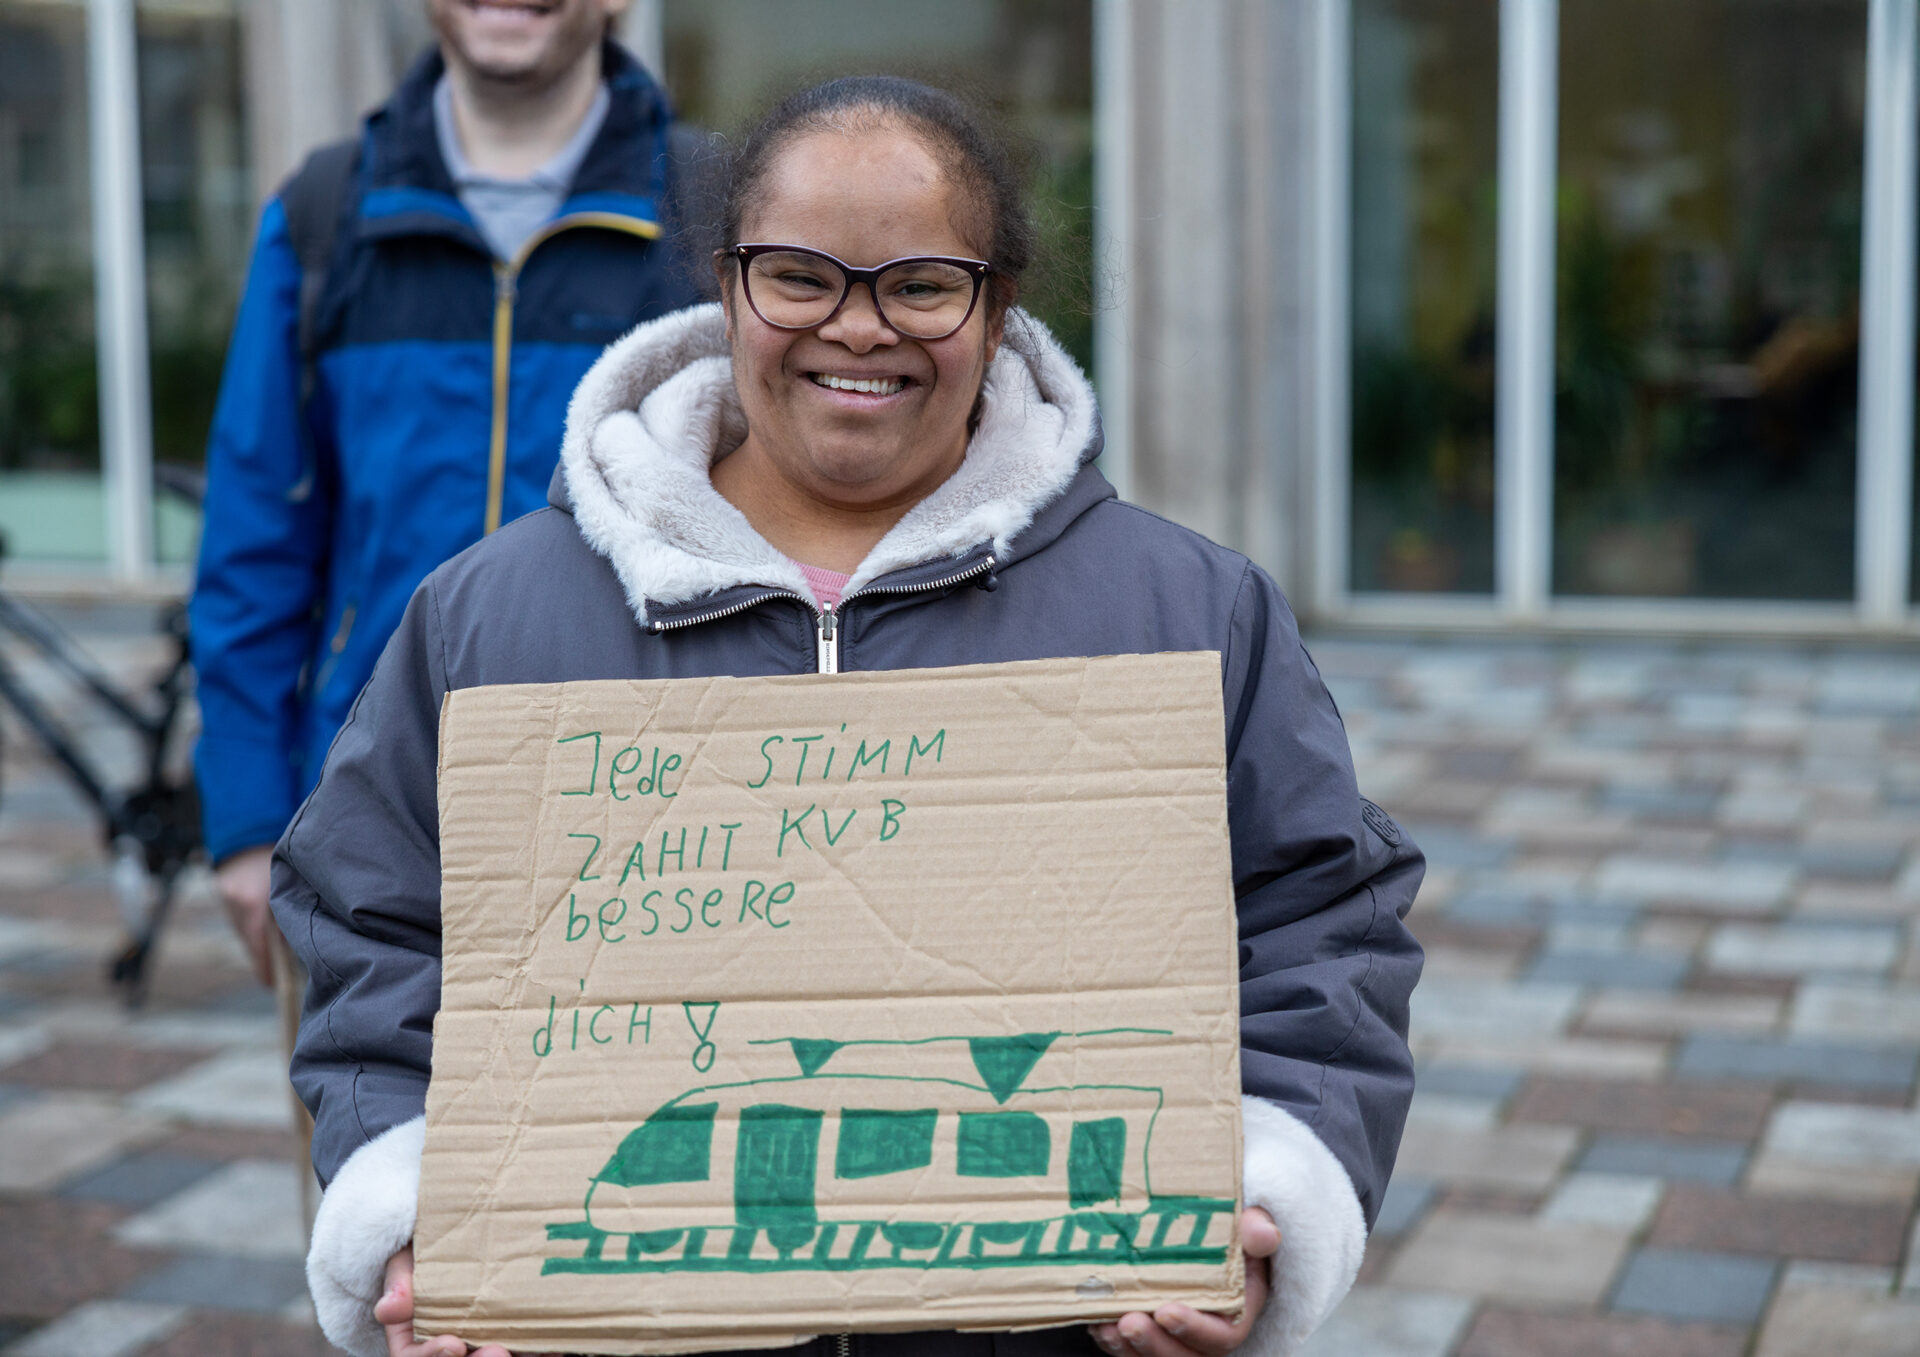 Jede STiMM
ZAHlT KVB
besseRe
dicH!